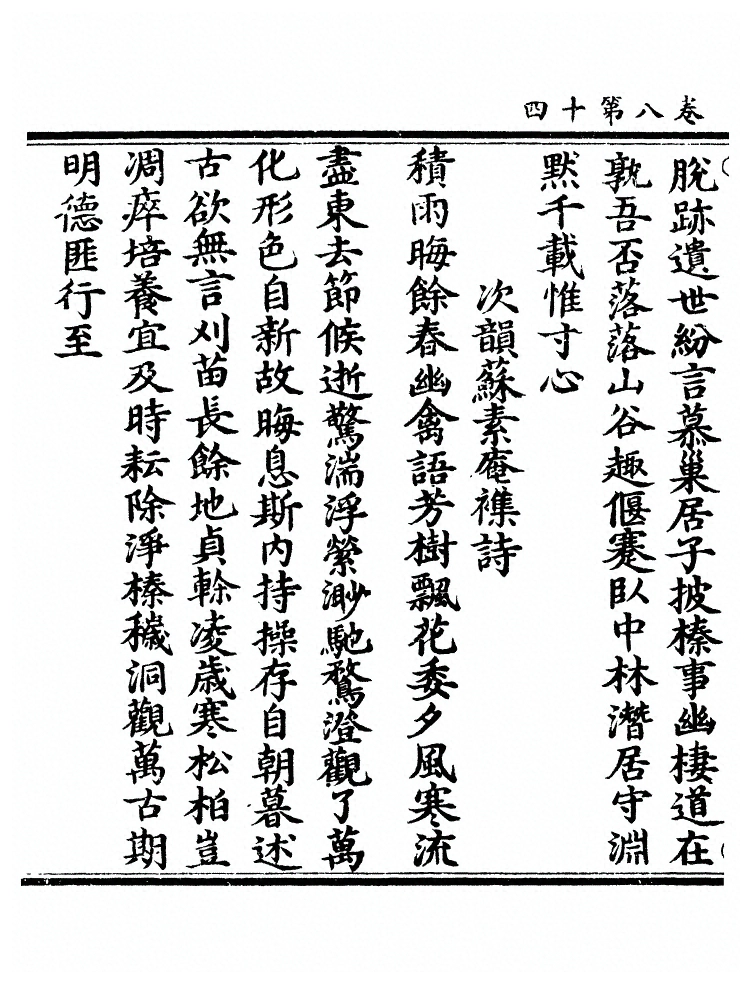 卷八第十四
脫跡遺世紛言慕巢居子披榛事幽棲道在
孰吾否落落山谷趣偃蹇臥中林潛居守淵
默千載惟寸心
次韻蘇素庵襍詩
積雨晦餘春幽禽語芳樹飄花委夕風寒流
盡東去節候逝驚湍浮縈渺馳騖澄觀了萬
化形色自新故晦息斯內持操存自朝暮述
古欲無言刈苗長餘地貞榦凌歲寒松柏豈
凋瘁培養宜及時耘除淨榛穢洞觀萬古期
明德匪行至